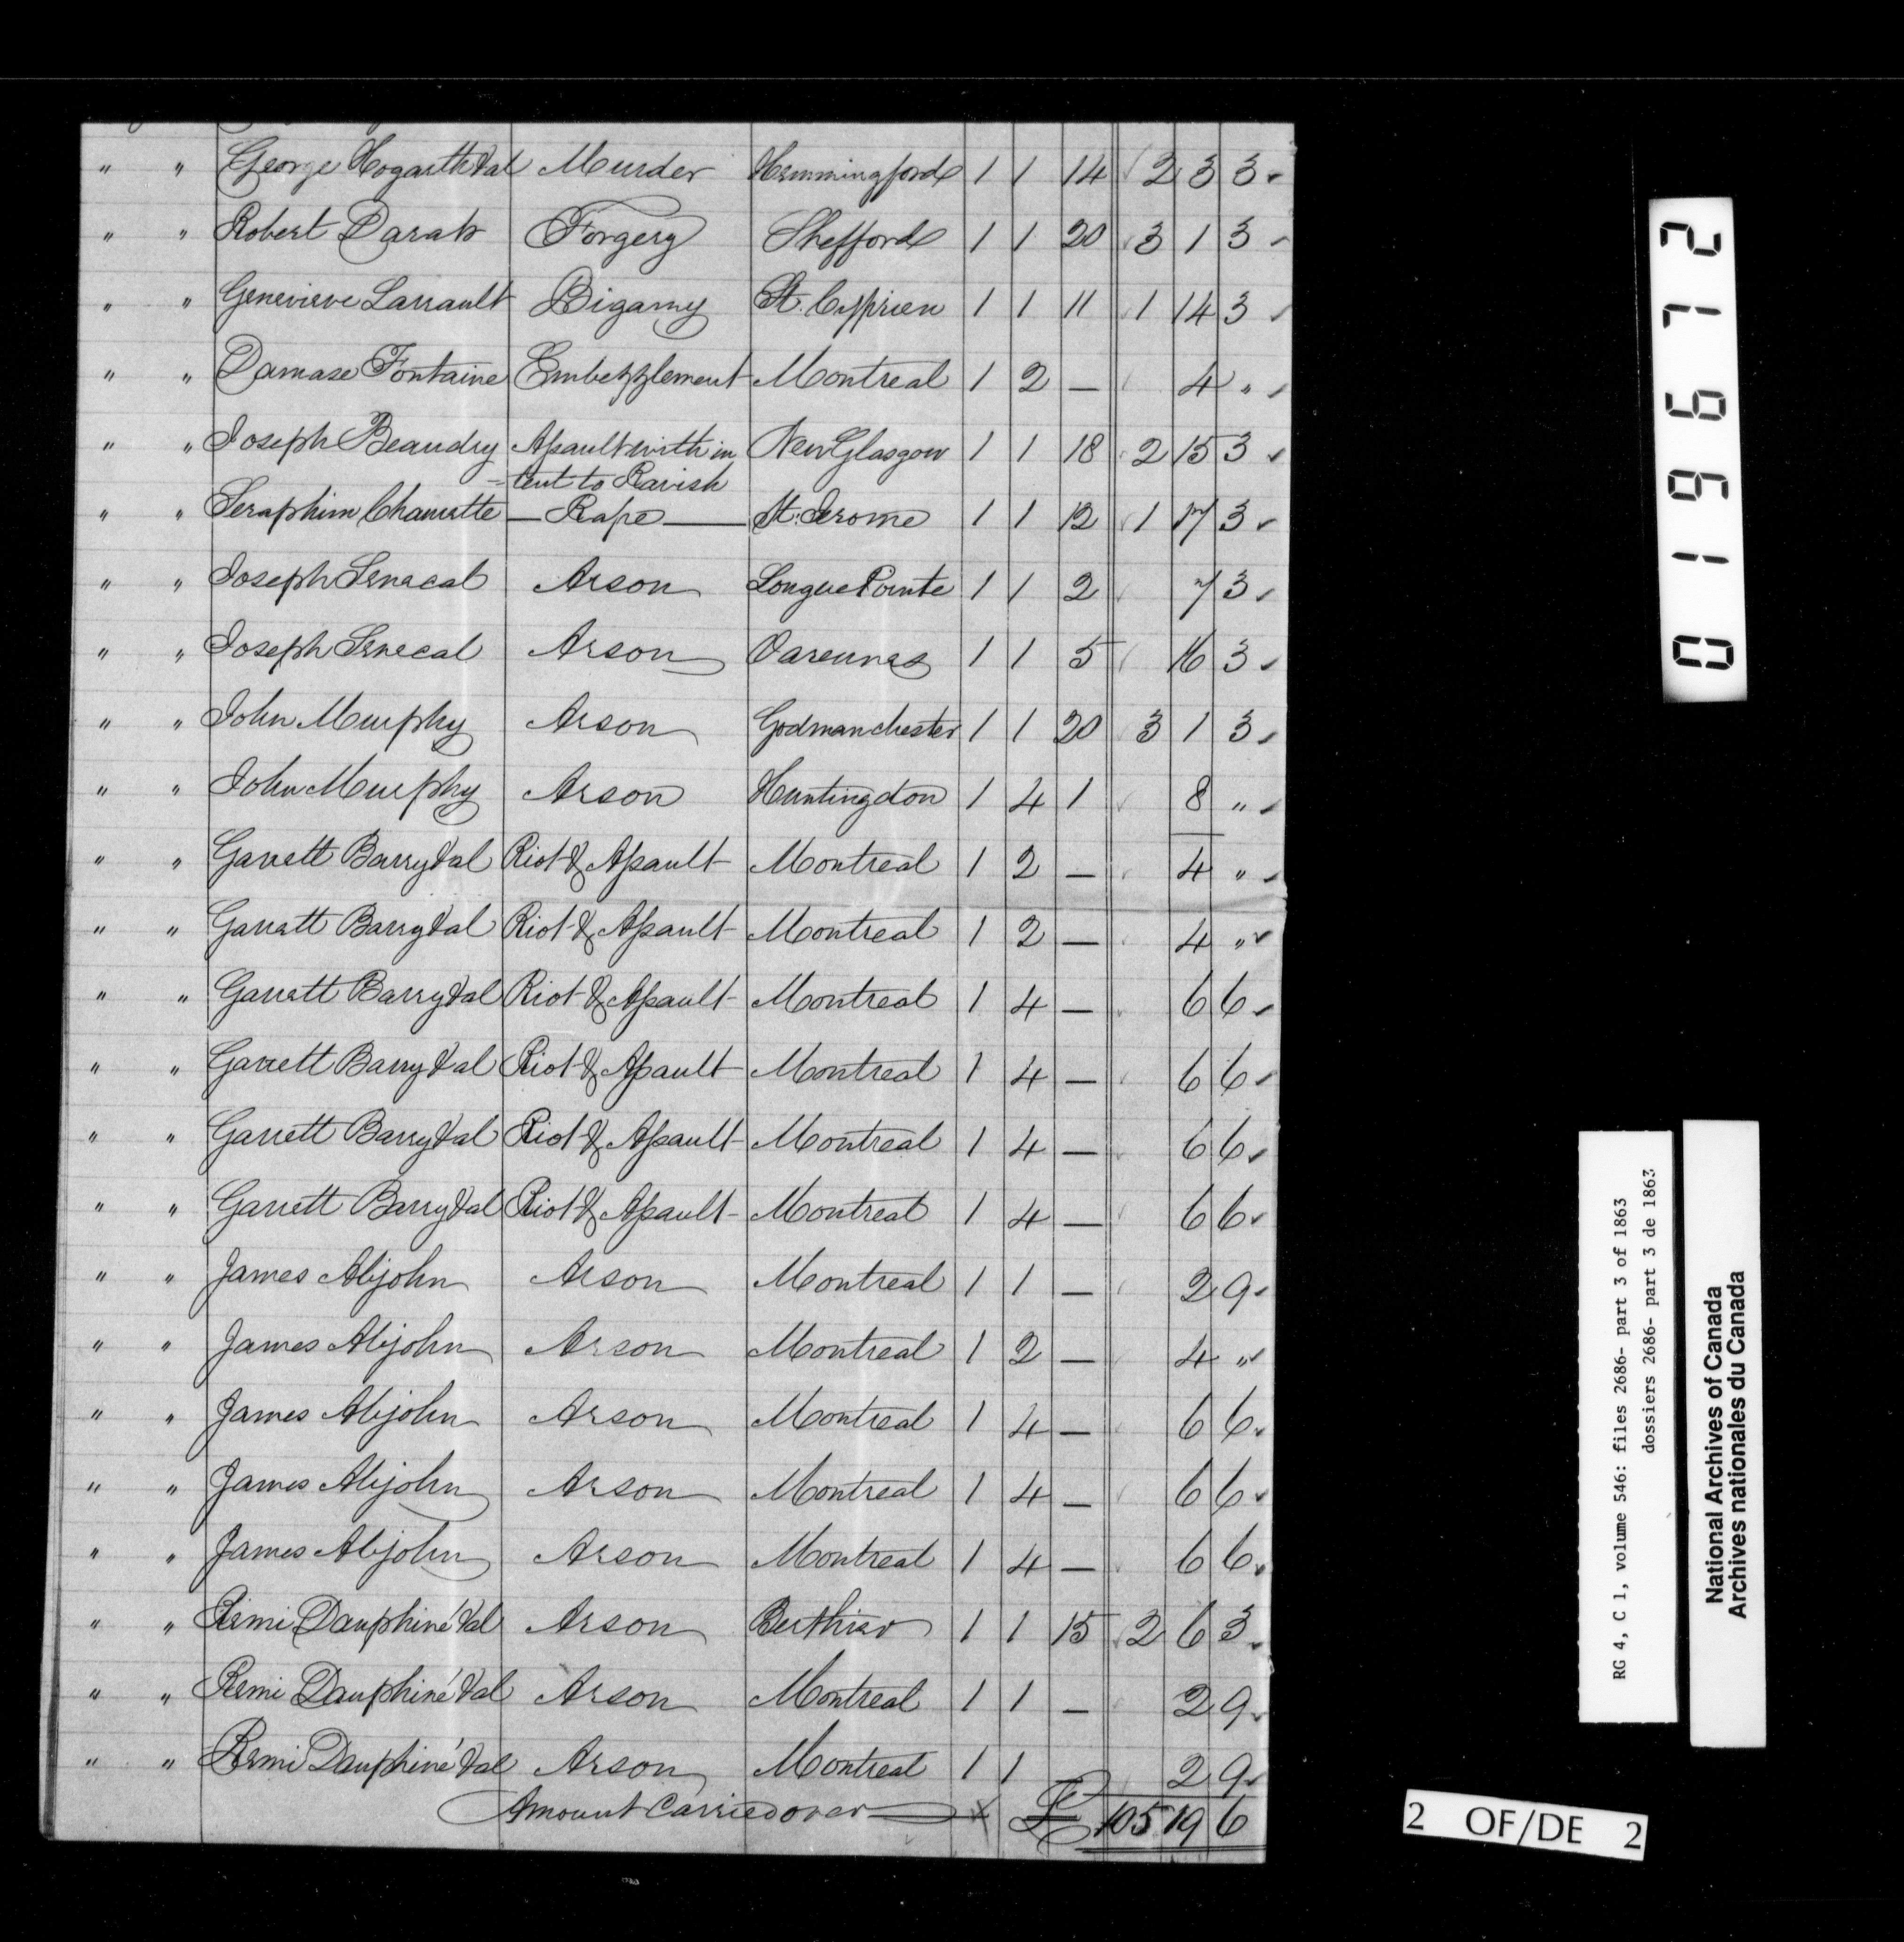 " " George Hogarth &al Murder Hemmingford 1 1 14 2 3 3
" " Robert Darah Forgery Shefford 1 1 20 3 1 3
" " Genevieve Larrault Bigamy St. Cyprien 1 1 11 1 14 3
" " Damase Fontaine Embezzlement Montreal 1 2 — 4 "
" " Joseph Beaudry Assault with in New Glasgow 1 1 18 2 15 3
= tent to Ravish
" " Seraphim Chaurette — Rape — St. Jerome 1 1 12 1 17 3
" " Joseph Senecal Arson Longue Pointe 1 1 2 7 3
" " Joseph Senecal Arson Varennes 1 1 5 16 3
" " John Murphy Arson Godmanchester 1 1 20 3 1 3
" " John Murphy Arson Huntingdon 1 4 1 8 "
" " Garrett Barry &al Riot & Assault Montreal 1 2 — 4 "
" " Garrett Barry &al Riot & Assault Montreal 1 2 — 4 "
" " Garrett Barry &al Riot & Assault Montreal 1 4 — 6 6
" " Garrett Barry &al Riot & Assault Montreal 1 4 — 6 6
" " Garrett Barry &al Riot & Assault Montreal 1 4 — 6 6
" " Garrett Barry &al Riot & Assault Montreal 1 4 — 6 6
" " James Abijohn Arson Montreal 1 1 — 2 9
" " James Abijohn Arson Montreal 1 2 — 4 "
" " James Abijohn Arson Montreal 1 4 — 6 6
" " James Abijohn Arson Montreal 1 4 — 6 6
" " James Abijohn Arson Montreal 1 4 — 6 6
" " Remi Dauphiné &al Arson Berthier 1 1 15 2 6 3
" " Remi Dauphiné &al Arson Montreal 1 1 — 2 9
" " Remi Dauphiné &al Arson Montreal 1 1 2 9
Amount Carried over — £ 105 19 6
019672
RG 4, C 1, volume 546: files 2686- part 3 of 1863
dossiers 2686- part 3 de 1863
National Archives of Canada
Archives nationales du Canada
2 OF/DE 2